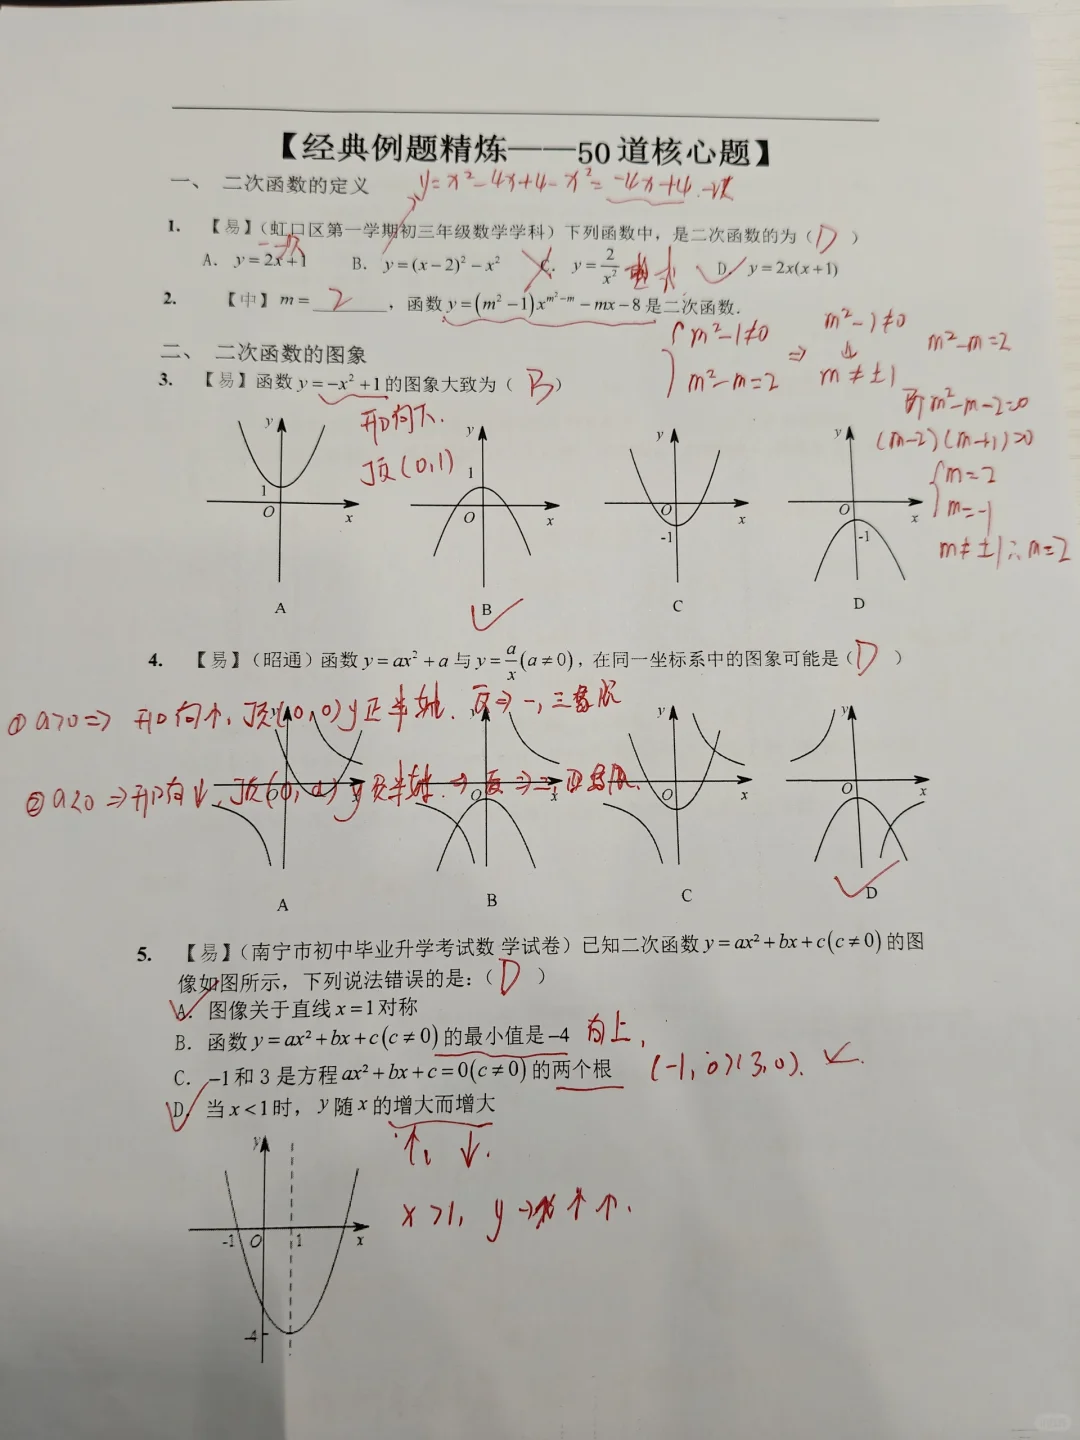 【经典例题精炼——50道核心题】
一、 二次函数的定义
y=x²-4x+4-x²=-4x+4.一次
1. 【易】(虹口区第一学期初三年级数学学科)下列函数中，是二次函数的为(D)
一次
A. y=2x+1 B. y=(x-2)²-x² C. y=2/x² D. y=2x(x+1)
2. 【中】m=2，函数y=(m²-1)x^(m²-m)-mx-8是二次函数.
{m²-1≠0
m²-m=2
⇒ m²-1≠0
↓
m≠±1
m²-m=2
即m²-m-2=0
(m-2)(m+1)=0
{m=2
m=-1
m≠±1∴m=2
二、 二次函数的图象
3. 【易】函数y=-x²+1的图象大致为(B)
开口向下.
顶(0,1)
y y y y
1 O x 1 O x O x -1 O x -1
A B C D
4. 【易】(昭通)函数y=ax²+a与y=a/x(a≠0)，在同一坐标系中的图象可能是(D)
①a>0⇒开口向个,顶(0,0)y正半轴.反⇒一,三象限
②a<0⇒开口向↓,顶(0,a)y负半轴→反⇒二,四象限.
y y y y
O x O x O x O x
A B C D
5. 【易】(南宁市初中毕业升学考试数 学试卷)已知二次函数y=ax²+bx+c(c≠0)的图
像如图所示，下列说法错误的是：(D)
A. 图像关于直线x=1对称
B. 函数y=ax²+bx+c(c≠0)的最小值是-4 向上,
C. -1和3是方程ax²+bx+c=0(c≠0)的两个根 (-1,0)(3,0).
D. 当x<1时，y随x的增大而增大
↑, ↓.
x>1, y→x↑↑.
y
-1 O 1 x
-4